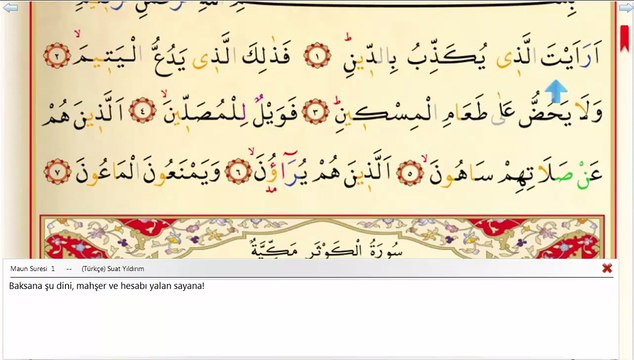 اَرَاَيْتَ الَّذٖى يُكَذِّبُ بِالدّٖينِ ﴿١﴾ فَذٰلِكَ الَّذٖى يَدُعُّ الْيَتٖيمَ ﴿٢﴾
وَلَا يَحُضُّ عَلٰى طَعَامِ الْمِسْكٖينِ ﴿٣﴾ فَوَيْلٌ لِلْمُصَلّٖينَ ﴿٤﴾ اَلَّذٖينَ هُمْ
عَنْ صَلَاتِهِمْ سَاهُونَ ﴿٥﴾ اَلَّذٖينَ هُمْ يُرَاؤُنَ ﴿٦﴾ وَيَمْنَعُونَ الْمَاعُونَ ﴿٧﴾
سُورَةُ الْكَوْثَرِ مَكِّيَّةٌ
Maun Suresi 1 -- (Türkçe) Suat Yıldırım
Baksana şu dini, mahşer ve hesabı yalan sayana!